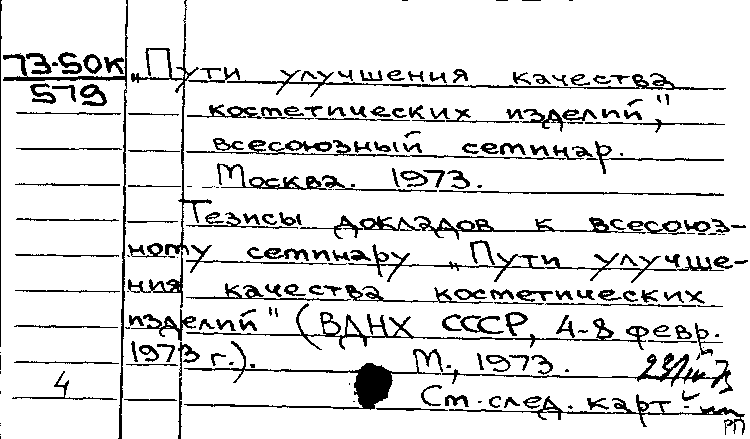 73-50к
579
„Пути улучшения качества
косметических изделий",
всесоюзный семинар.
Москва. 1973.
Тезисы докладов к всесоюз-
ному семинару „Пути улучше-
ния качества косметических
изделий" (ВДНХ СССР, 4-8 февр.
1973 г.). М., 1973.
4
См. след. карт.
РП